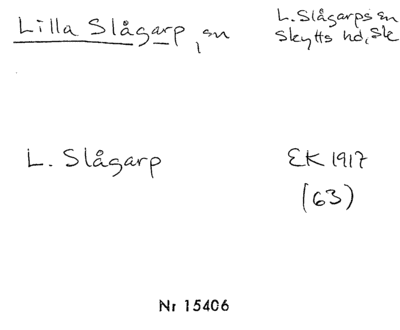 Lilla Slågarp, sn
L. Slågarps sn
Skytts hd, Sk
L. Slågarp
EK 1917
(63)
Nr 15406